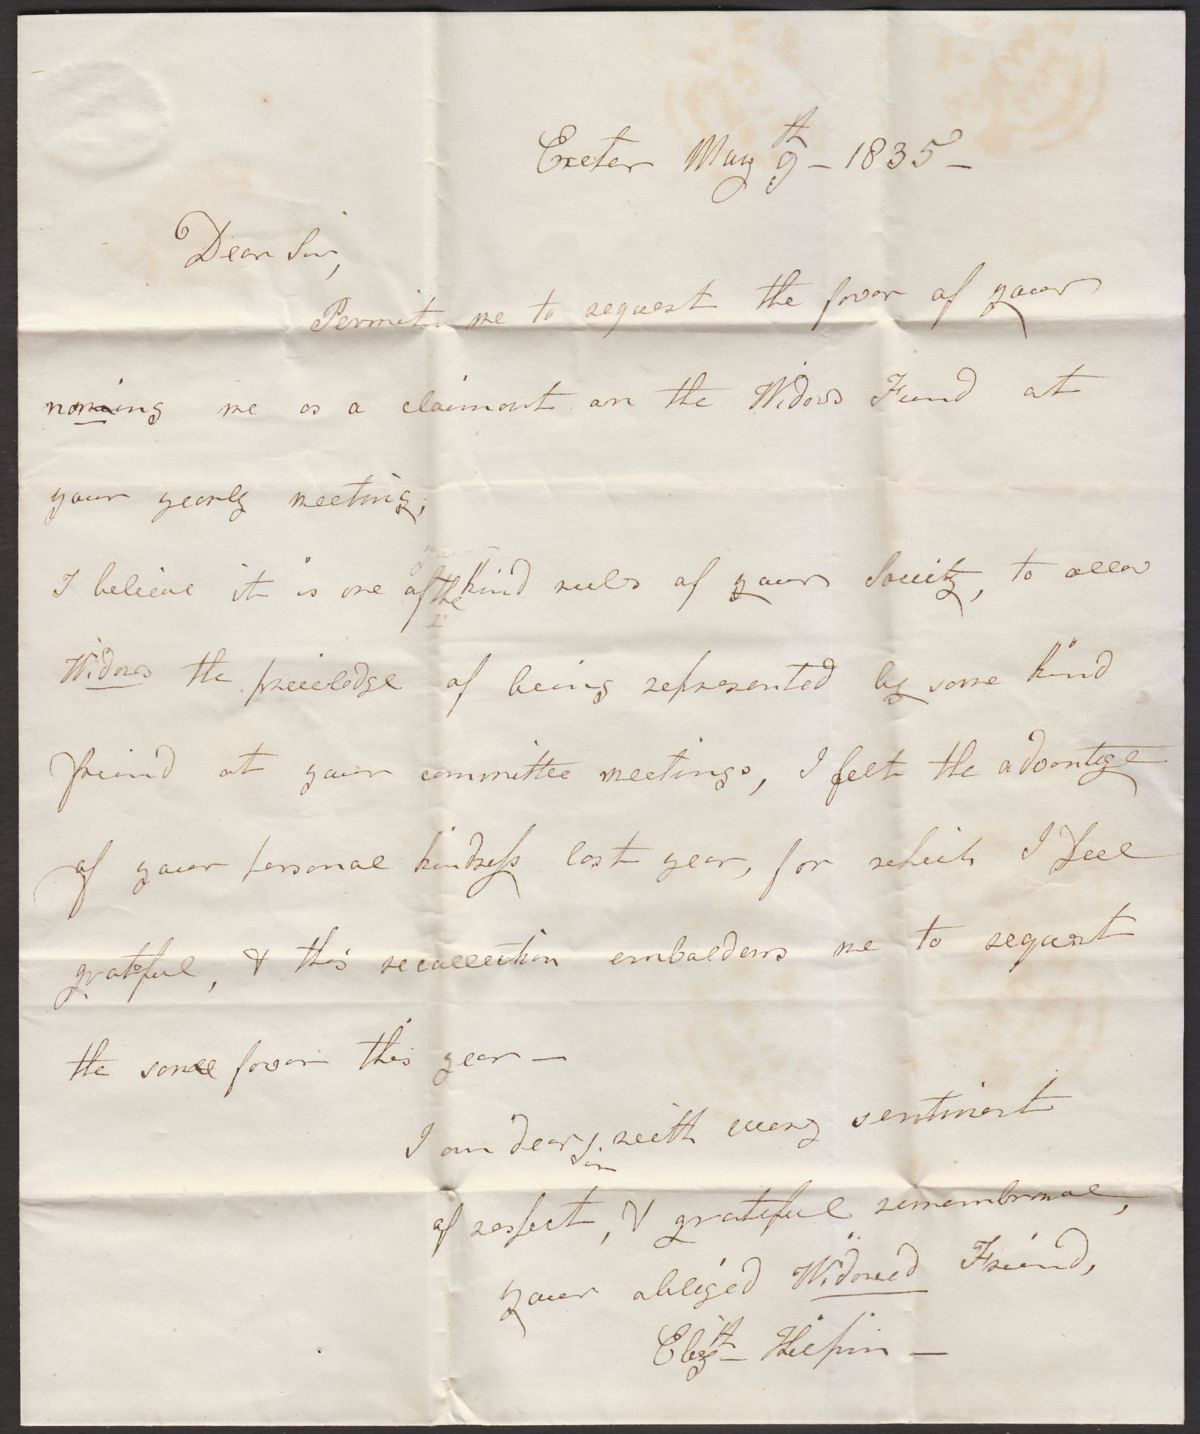 Exeter May 9th - 1835 -
Dear Sir,
Permit me to request the favor of your
naming me as a claimant on the Widows Fund at
your yearly meeting;
I believe it is one of the kind rules of your Society, to allow
Widows the priviledge of being represented by some kind
friend at your committee meetings, I felt the advantage
of your personal kindness last year, for which I feel
grateful, & this recollection emboldens me to request
the same favor this year -
I am dear Sir, with every sentiment
of respect, & grateful remembrance,
your obliged Widowed Friend,
Elizth -